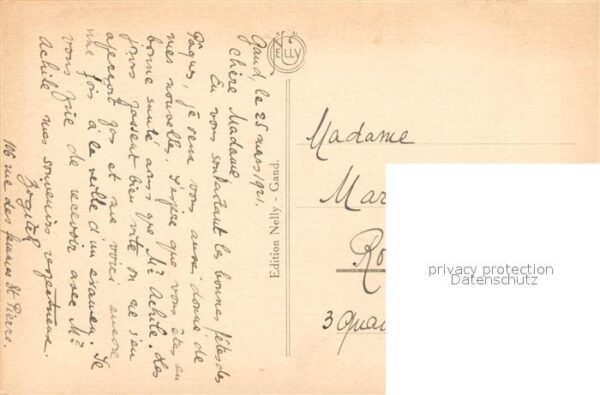 Gand, le 25 mars 1921.
Chère Madame
En vous souhaitant les bonnes fêtes de
Pâques, je veux vous aussi donner de
mes nouvelles. J'espère que vous êtes en
bonne santé ainsi que Mr Achile. Les
jours passent bien vite on ne s'en
aperçoit pas et me voici encore
une fois à la veille d'un examen. Je
vous prie de recevoir avec Mr
Achile mes souvenirs respectueux.
106 rue des femmes St Pierre.
NELLY
Edition Nelly - Gand.
Madame
Mar
Ro
3 Quai
privacy protection
Datenschutz